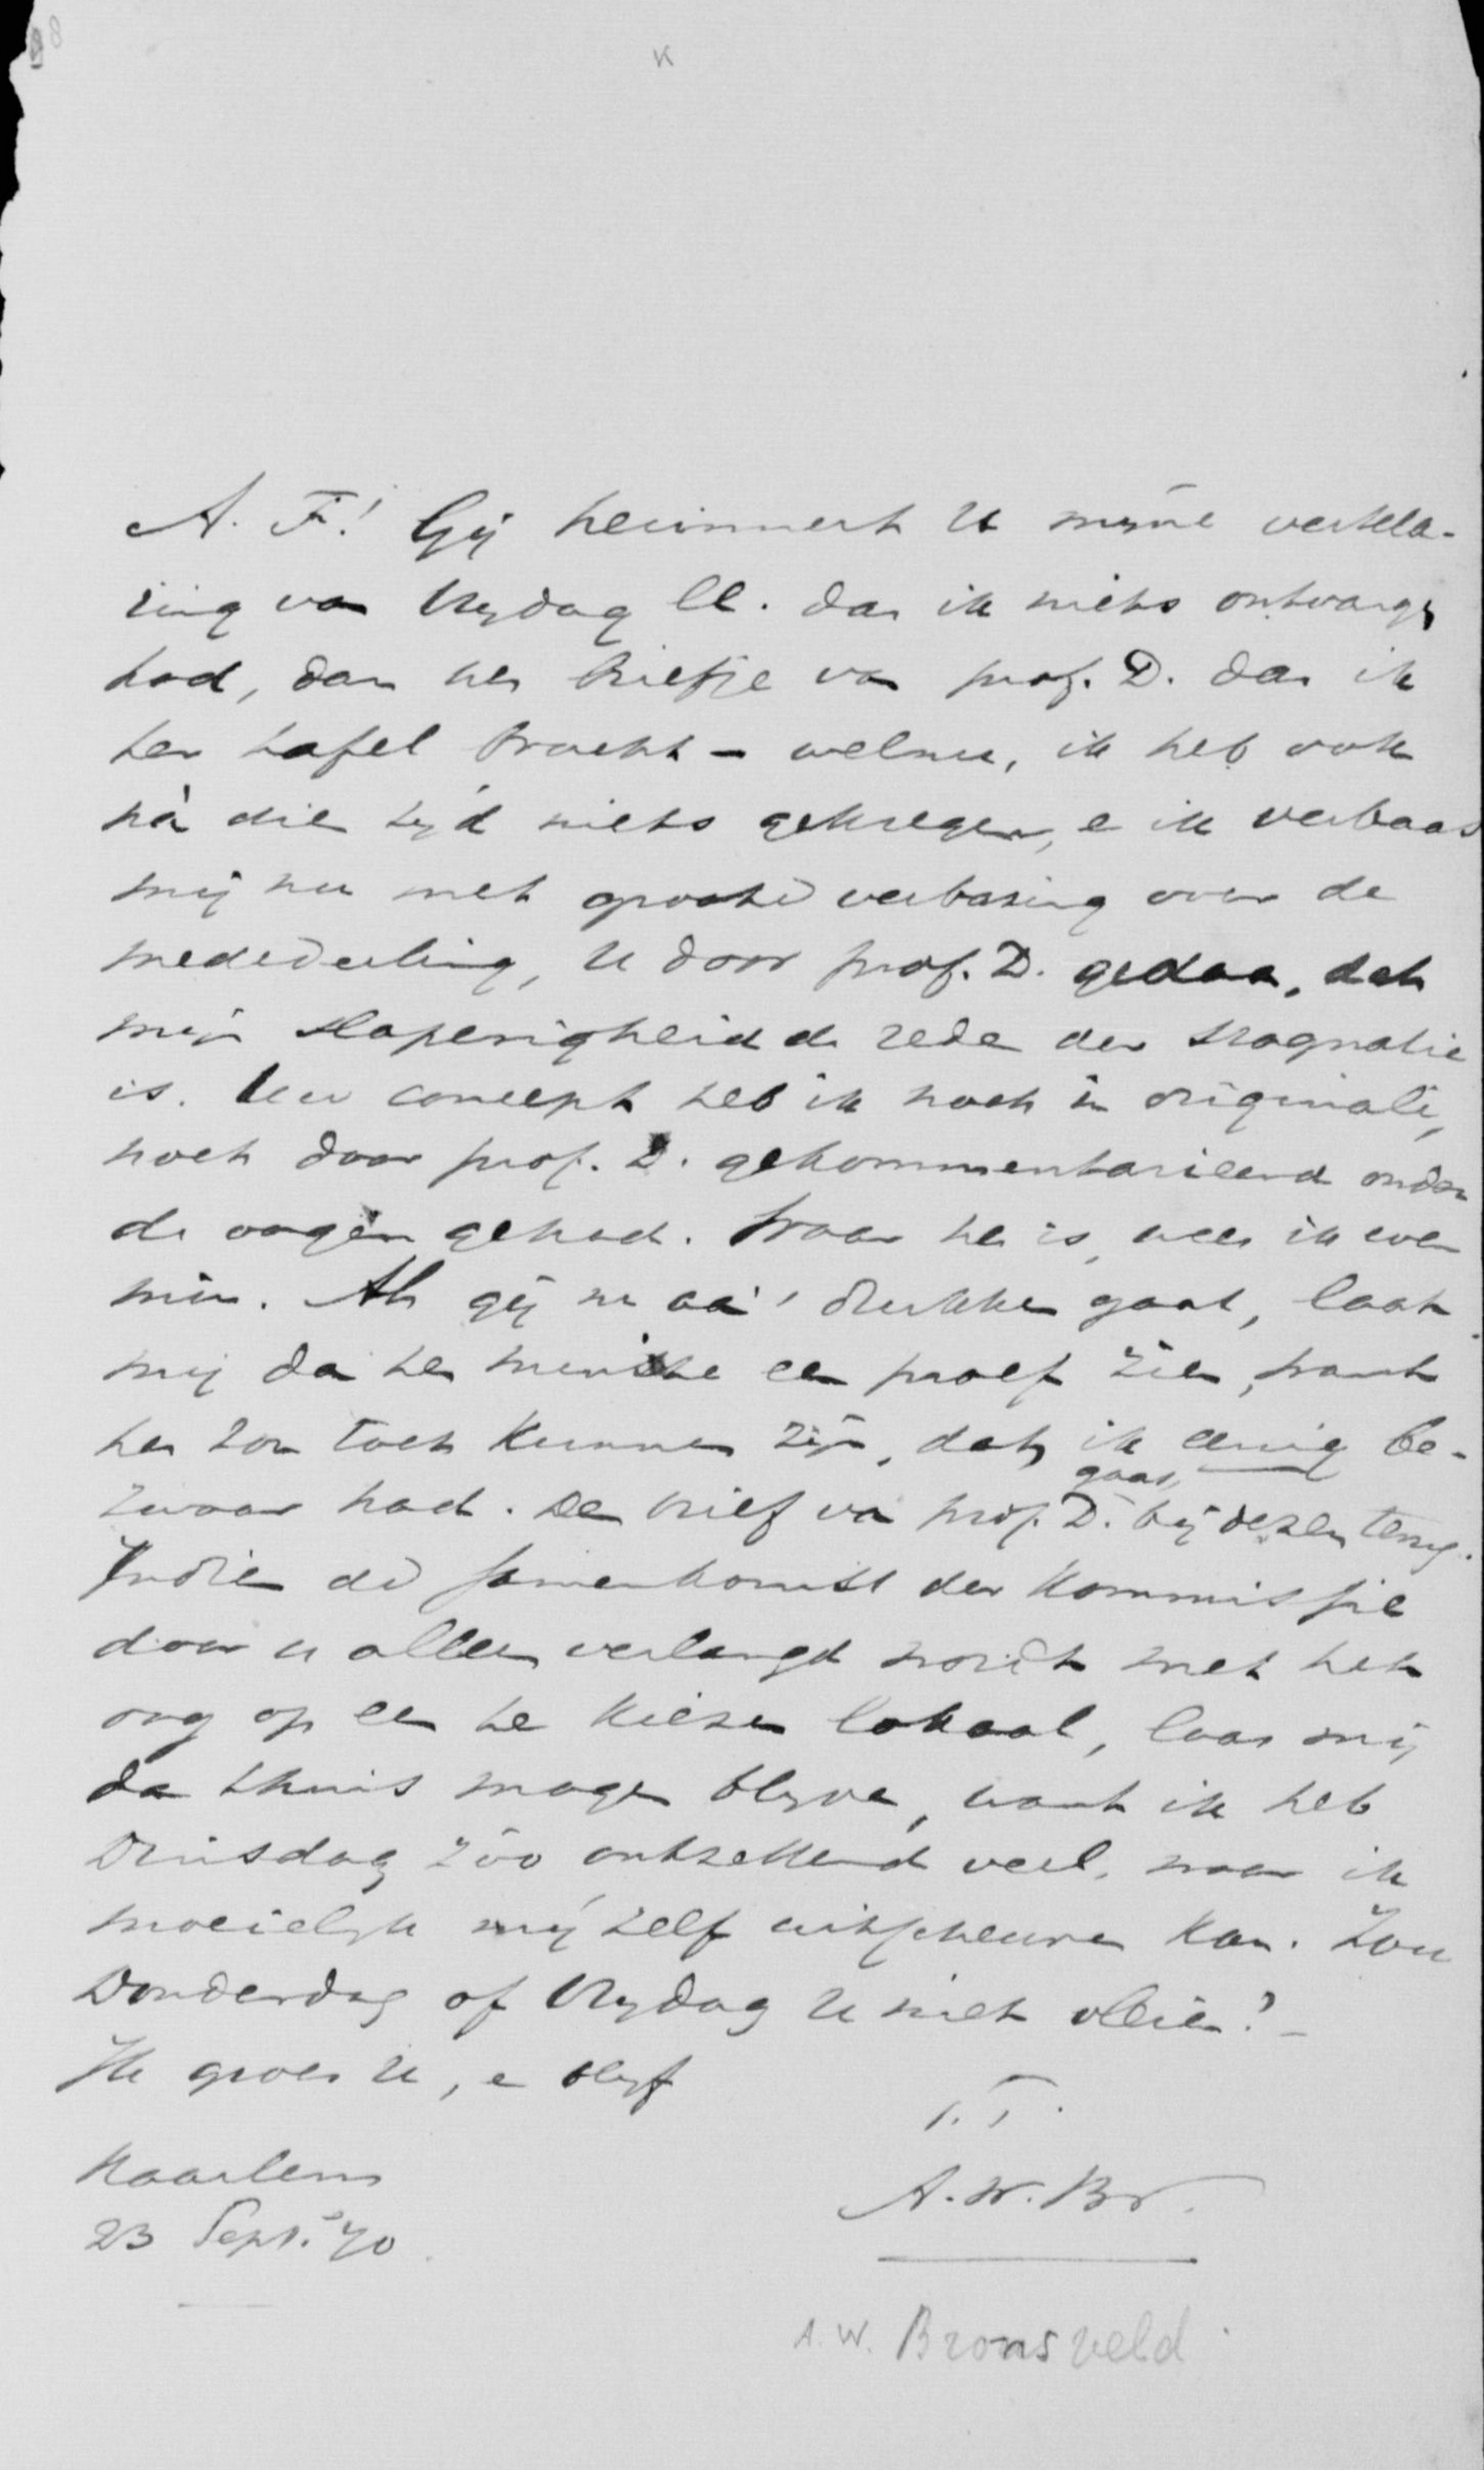 K
A. F.! Gij herinnert U mijne verkla-
ring van Vrydag ll. dat ik niets ontvangen
had, dan het briefje van prof. D. dat ik
ter tafel bracht - welnu, ik heb ook
nà die tyd niets gekregen, e ik verbaas
mij nu met groote verbazing over de
mededeeling, U door prof. D. gedaan, dat
mijn slaperigheid de rede der stagnatie
is. Uw concept heb ik noch in originali,
noch door prof. D. gekommentarieerd onder
de oogen gehad. Waar het is, weet ik even
min. Als gij nu aan 't drukken gaat, laat
mij dan ten minste een proef zien, want
het zou toch kunnen zijn, dat ik eenig be-
zwaar had. De brief van prof. D. gaat bij dezen terug.
Indien de samenkomst der Kommissie
door u allen verlangd wordt met het
oog op een te kiezen lokaal, laat mij
dan thuis mogen blyven, want ik heb
Dinsdag zóó ontzettend veel, waar ik
moeielyk mij zelf uitscheuren kan. Zou
Donderdag of Vrydag U niet vleien? -
Ik groet U, e blyf
T.T.
A. W. Br.
Haarlem
23 Sept. '70
A. W. Bronsveld